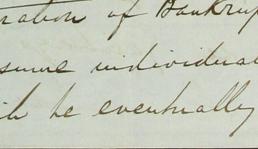 ration of Bankrup
same individual
ill be eventually